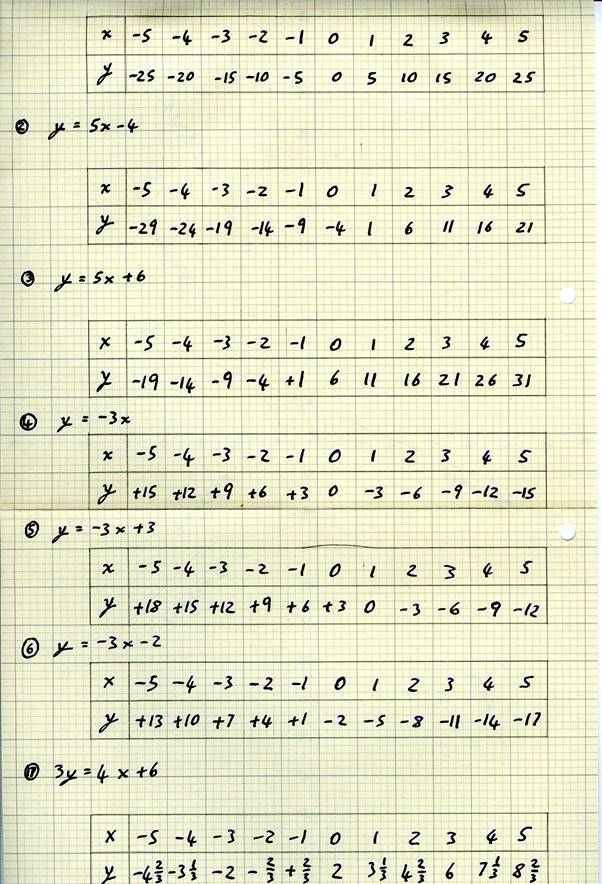 x -5 -4 -3 -2 -1 0 1 2 3 4 5
y -25 -20 -15 -10 -5 0 5 10 15 20 25
② y = 5x - 4
x -5 -4 -3 -2 -1 0 1 2 3 4 5
y -29 -24 -19 -14 -9 -4 1 6 11 16 21
③ y = 5x + 6
x -5 -4 -3 -2 -1 0 1 2 3 4 5
y -19 -14 -9 -4 +1 6 11 16 21 26 31
④ y = -3x
x -5 -4 -3 -2 -1 0 1 2 3 4 5
y +15 +12 +9 +6 +3 0 -3 -6 -9 -12 -15
⑤ y = -3x + 3
x -5 -4 -3 -2 -1 0 1 2 3 4 5
y +18 +15 +12 +9 +6 +3 0 -3 -6 -9 -12
⑥ y = -3x - 2
x -5 -4 -3 -2 -1 0 1 2 3 4 5
y +13 +10 +7 +4 +1 -2 -5 -8 -11 -14 -17
⑰ 3y = 4x + 6
x -5 -4 -3 -2 -1 0 1 2 3 4 5
y -4⅔ -3⅓ -2 -⅔ +⅔ 2 3⅓ 4⅔ 6 7⅓ 8⅔